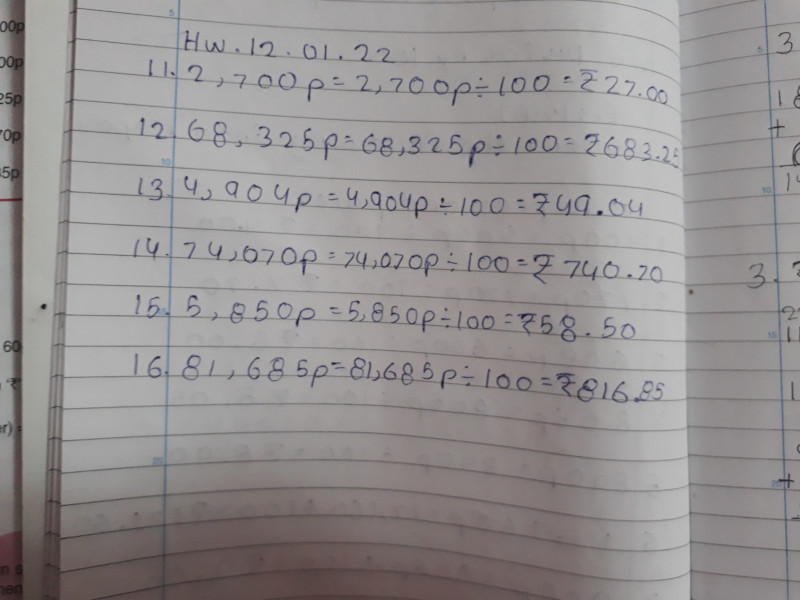 HW.12.01.22
11. 2,700p = 2,700p÷100 = ₹27.00
12. 68,325p = 68,325p÷100 = ₹683.25
13. 4,904p = 4,904p÷100 = ₹49.04
14. 74,070p = 74,070p÷100 = ₹740.70
15. 5,850p = 5,850p÷100 = ₹58.50
16. 81,685p = 81,685p÷100 = ₹816.85